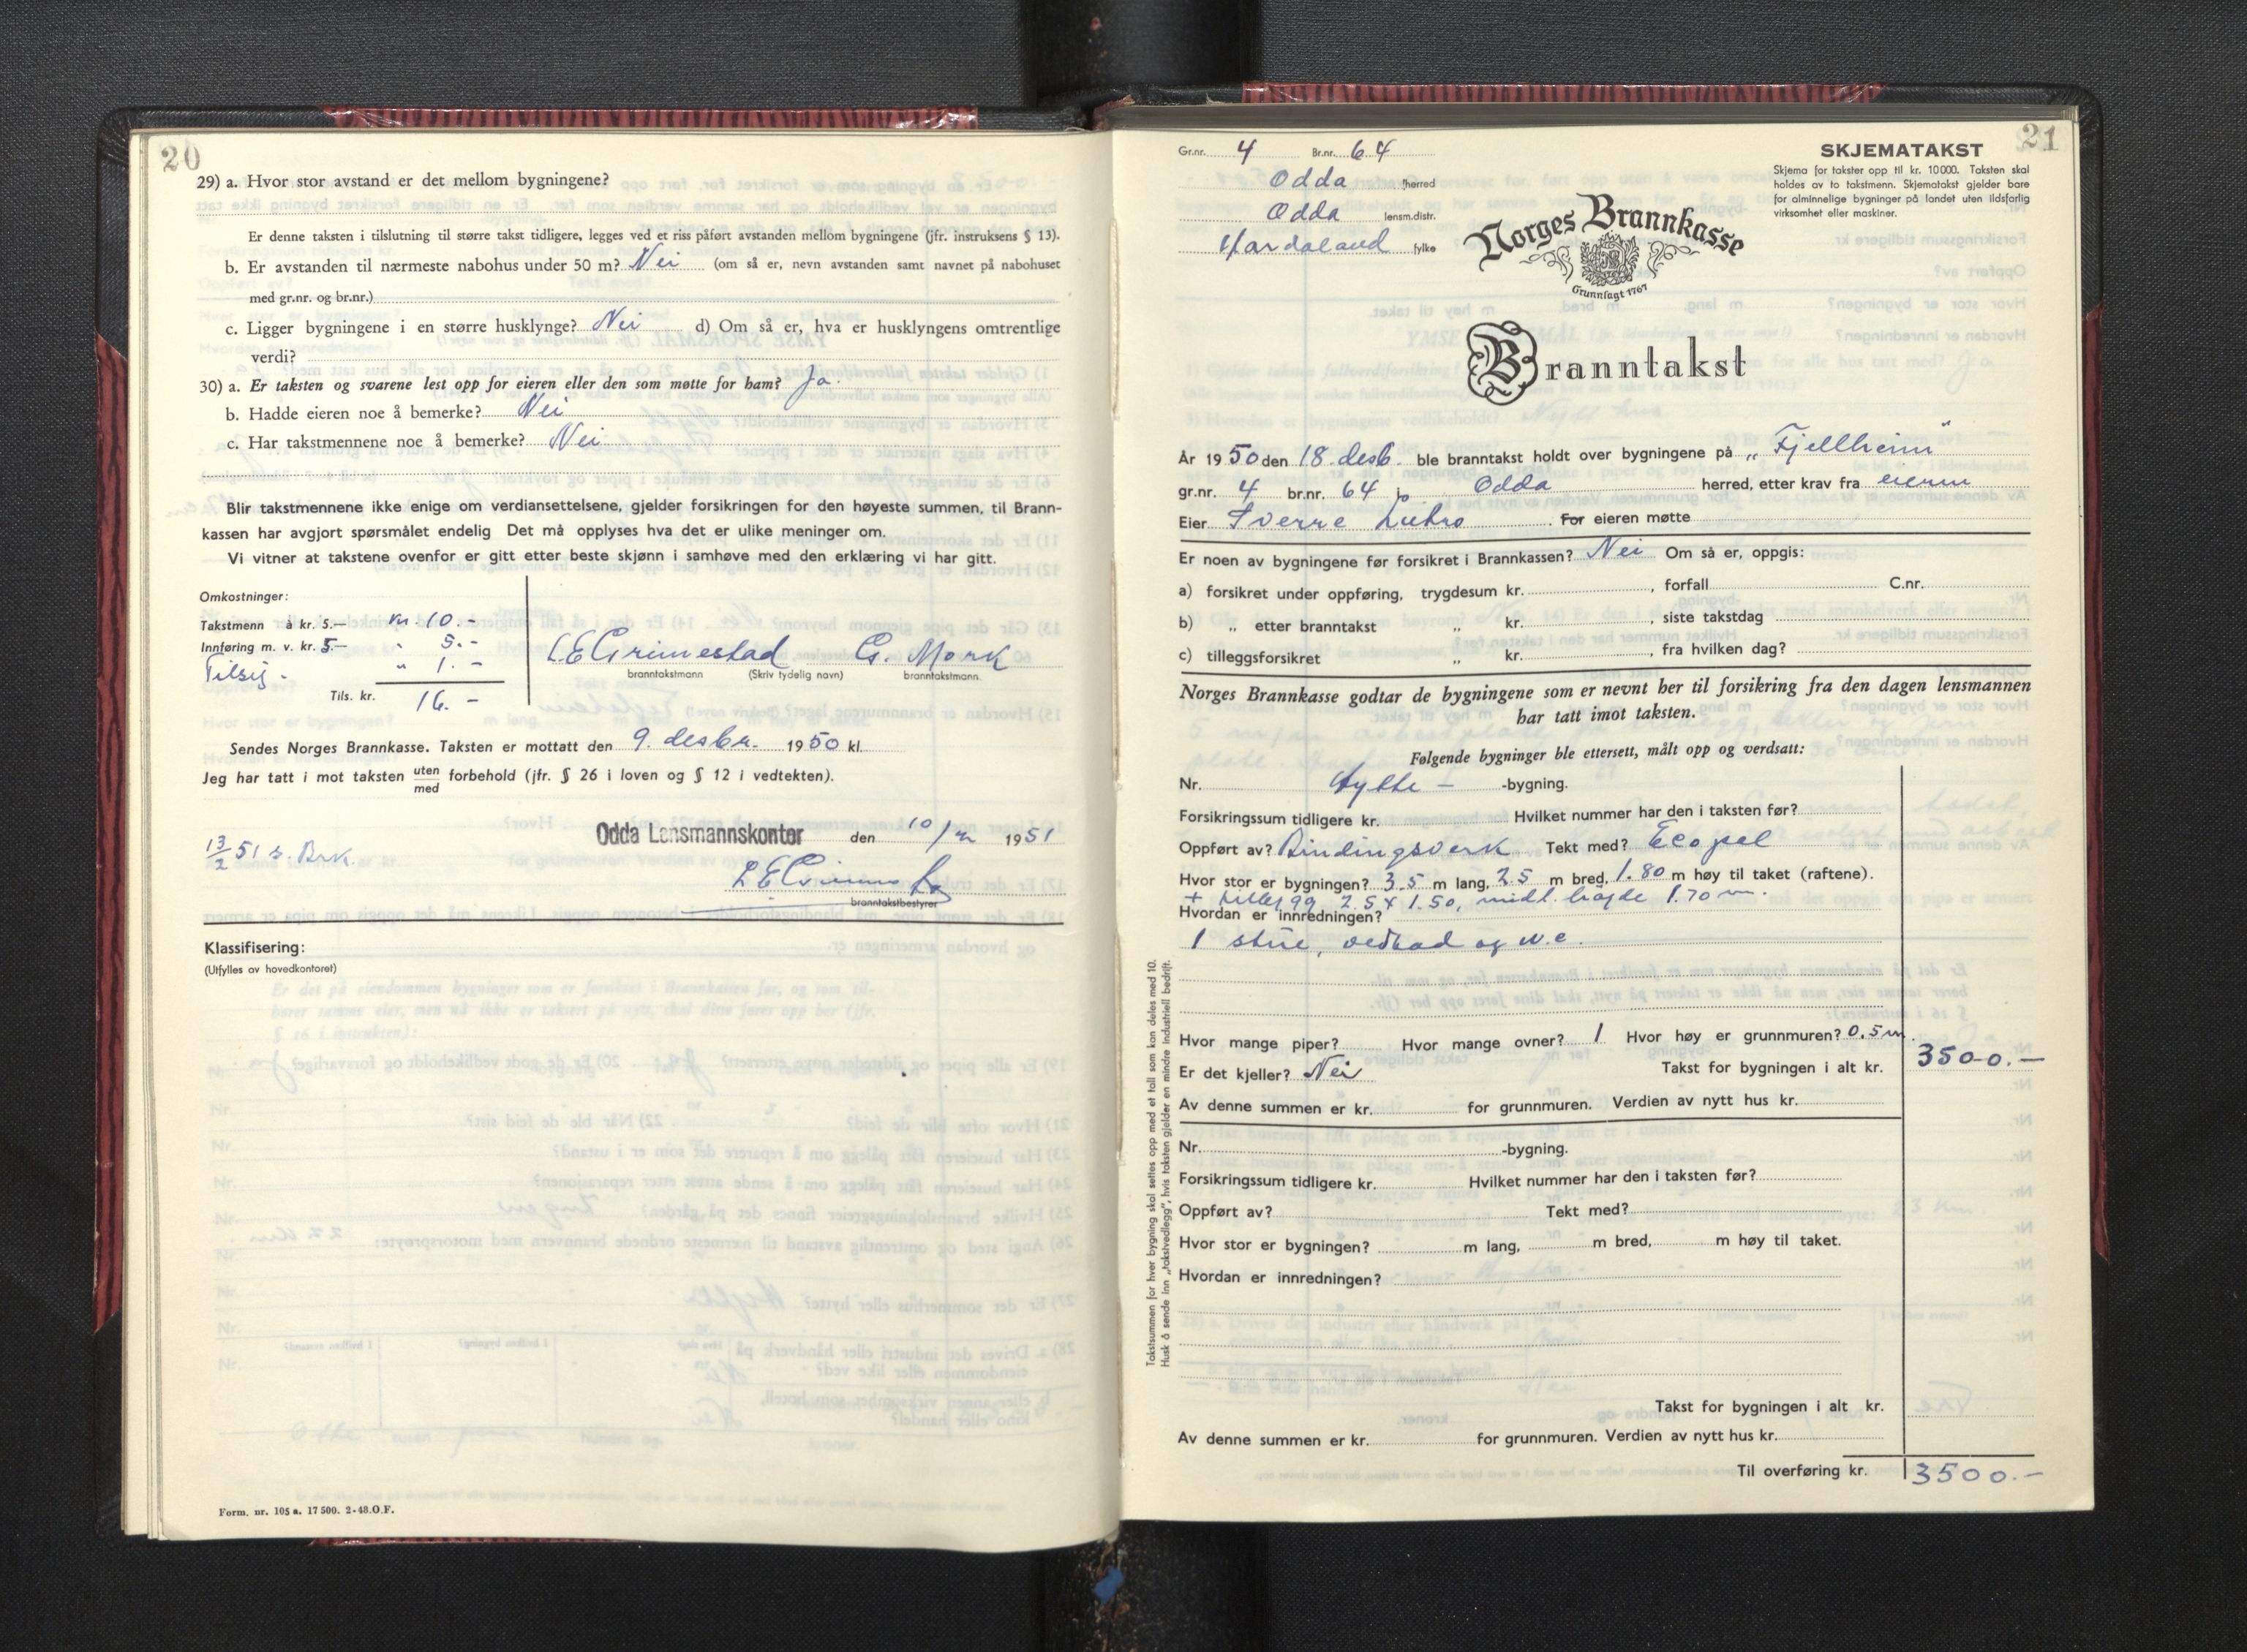 20
29) a. Hvor stor avstand er det mellom bygningene?
Er denne taksten i tilslutning til større takst tidligere, legges ved et riss påført avstanden mellom bygningene (jfr. instruksens § 13).
b. Er avstanden til nærmeste nabohus under 50 m? Nei (om så er, nevn avstanden samt navnet på nabohuset
med gr.nr. og br.nr.)
c. Ligger bygningene i en større husklynge? Nei d) Om så er, hva er husklyngens omtrentlige
verdi?
30) a. Er taksten og svarene lest opp for eieren eller den som møtte for ham? Ja.
b. Hadde eieren noe å bemerke? Nei
c. Har takstmennene noe å bemerke? Nei
Blir takstmennene ikke enige om verdiansettelsene, gjelder forsikringen for den høyeste summen, til Brann-
kassen har avgjort spørsmålet endelig Det må opplyses hva det er ulike meninger om.
Vi vitner at takstene ovenfor er gitt etter beste skjønn i samhøve med den erklæring vi har gitt.
Omkostninger:
Takstmenn à kr. 5.— kr. 10.-
Innføring m. v. kr. 5.— " 5.-
Tilsig. " 1.-
Tils. kr. 16.-
L E Grimestad G. Mork
branntakstmann (Skriv tydelig navn) branntakstmann.
Sendes Norges Brannkasse. Taksten er mottatt den 9. desbr. 1950 kl.
Jeg har tatt i mot taksten uten forbehold (jfr. § 26 i loven og § 12 i vedtekten).
med
Odda Lensmannskontor den 10/ 1951
13/2 51 s. Brk.
L E Grimestad
branntakstbestyrer
Klassifisering:
(Utfylles av hovedkontoret)
Form. nr. 105 a. 17 500. 2-48. O. F.
21
Gr.nr. 4 Br.nr. 64
Odda herred
Odda lensm.distr.
Hordaland fylke
SKJEMATAKST
Skjema for takster opp til kr. 10000. Taksten skal
holdes av to takstmenn. Skjematakst gjelder bare
for alminnelige bygninger på landet uten ildsfarlig
virksomhet eller maskiner.
Norges Brannkasse
Grunnlagt 1767
Branntakst
År 1950 den 18. desb. ble branntakst holdt over bygningene på „Fjellheim"
gr.nr. 4 br.nr. 64 i Odda herred, etter krav fra eieren
Eier Sverre Lutro. For eieren møtte
Er noen av bygningene før forsikret i Brannkassen? Nei Om så er, oppgis:
a) forsikret under oppføring, trygdesum kr. , forfall C.nr.
b) „ etter branntakst „ kr. , siste takstdag
c) tilleggsforsikret „ kr. , fra hvilken dag?
Norges Brannkasse godtar de bygningene som er nevnt her til forsikring fra den dagen lensmannen
har tatt imot taksten.
Følgende bygninger ble ettersett, målt opp og verdsatt:
Nr. Hytte - -bygning.
Forsikringssum tidligere kr. Hvilket nummer har den i taksten før?
Oppført av? Bindingsverk Tekt med? Ecopel
Hvor stor er bygningen? 3.5 m lang, 2.5 m bred, 1.80 m høy til taket (raftene).
+ tillegg 2.5 x 1.50, midt. høgde 1.70 m.
Hvordan er innredningen?
1 stue, vedbod og w.c.
Hvor mange piper? Hvor mange ovner? 1 Hvor høy er grunnmuren? 0.5 m.
Er det kjeller? Nei Takst for bygningen i alt kr. 3500.-
Av denne summen er kr. for grunnmuren. Verdien av nytt hus kr.
Nr. -bygning.
Forsikringssum tidligere kr. Hvilket nummer har den i taksten før?
Oppført av? Tekt med?
Hvor stor er bygningen? m lang, m bred, m høy til taket.
Hvordan er innredningen?
Takst for bygningen i alt kr.
Av denne summen er kr. for grunnmuren. Verdien av nytt hus kr.
Til overføring kr. 3500.-
Takstsummen for hver bygning skal settes opp med et tall som kan deles med 10.
Husk å sende inn „takstvedlegg", hvis taksten gjelder en mindre industriell bedrift.